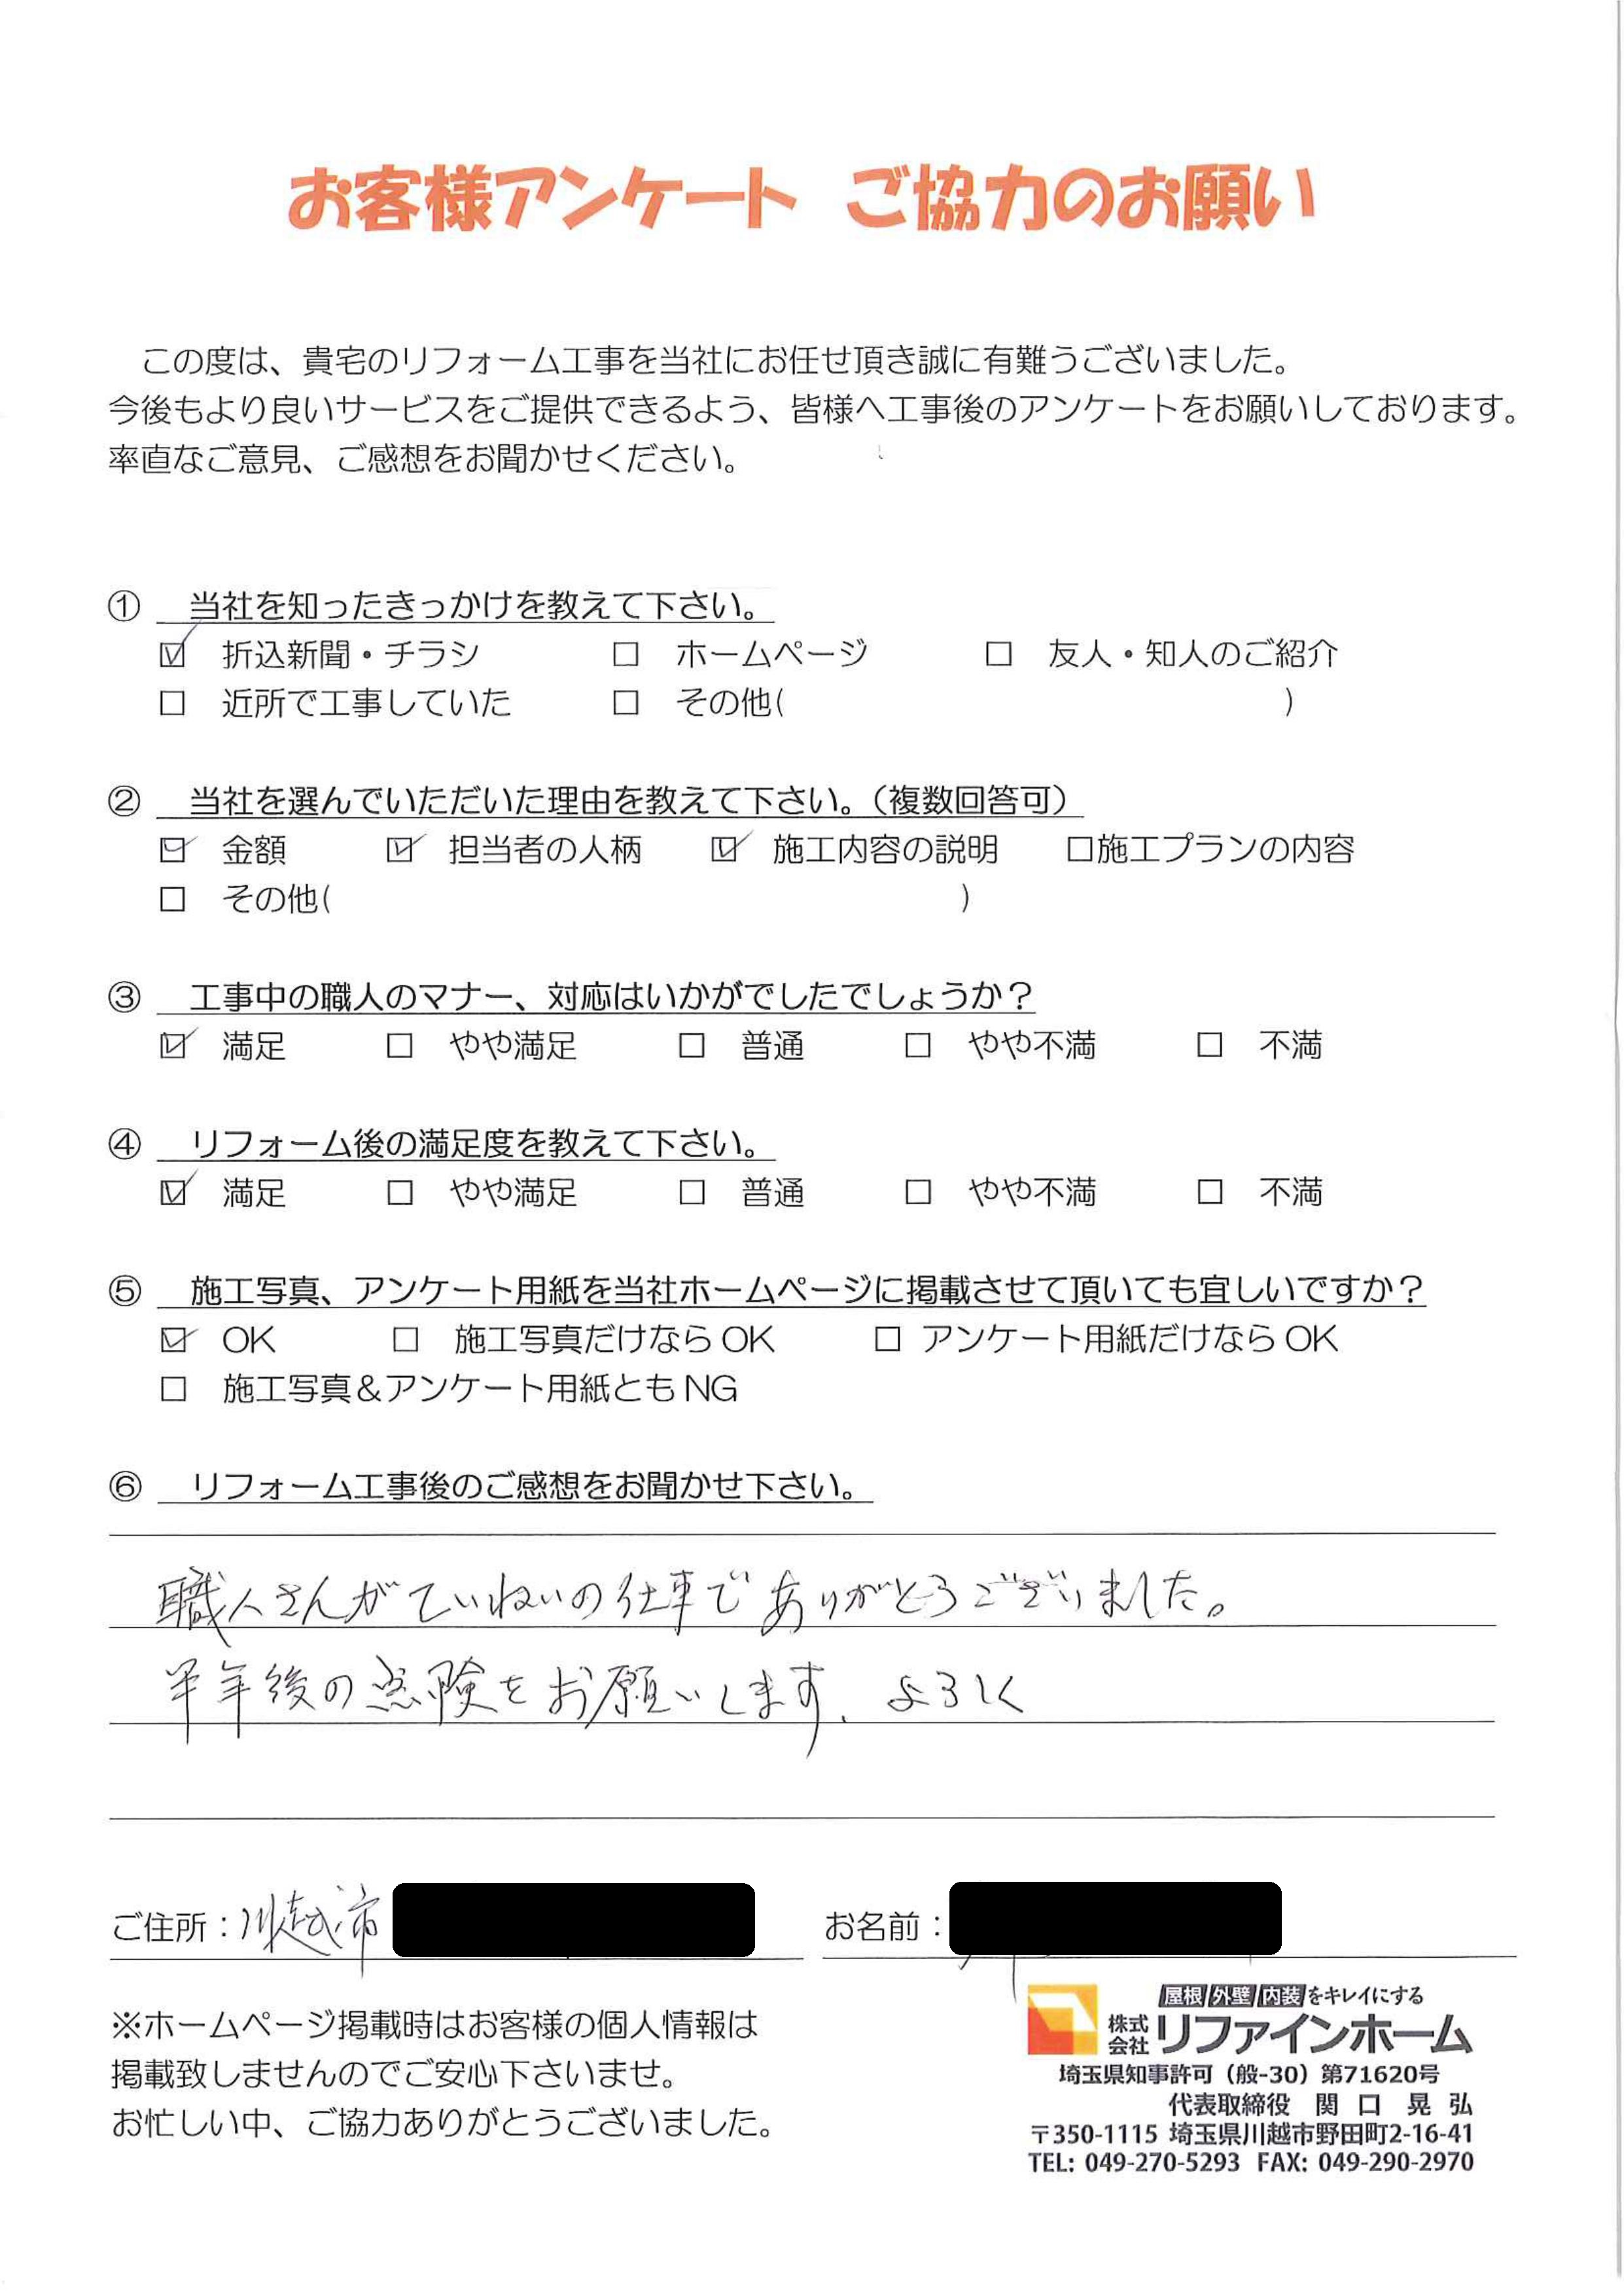 お客様アンケート ご協力のお願い
この度は、貴宅のリフォーム工事を当社にお任せ頂き誠に有難うございました。
今後もより良いサービスをご提供できるよう、皆様へ工事後のアンケートをお願いしております。
率直なご意見、ご感想をお聞かせください。
① 当社を知ったきっかけを教えて下さい。
☑ 折込新聞・チラシ □ ホームページ □ 友人・知人のご紹介
□ 近所で工事していた □ その他( )
② 当社を選んでいただいた理由を教えて下さい。(複数回答可)
☑ 金額 ☑ 担当者の人柄 ☑ 施工内容の説明 □施工プランの内容
□ その他( )
③ 工事中の職人のマナー、対応はいかがでしたでしょうか?
☑ 満足 □ やや満足 □ 普通 □ やや不満 □ 不満
④ リフォーム後の満足度を教えて下さい。
☑ 満足 □ やや満足 □ 普通 □ やや不満 □ 不満
⑤ 施工写真、アンケート用紙を当社ホームページに掲載させて頂いても宜しいですか?
☑ OK □ 施工写真だけなら OK □ アンケート用紙だけなら OK
□ 施工写真&アンケート用紙とも NG
⑥ リフォーム工事後のご感想をお聞かせ下さい。
職人さんがていねいの仕事でありがとうございました。
半年後の点険をお願いします、よろしく
ご住所:川越市 お名前:
※ホームページ掲載時はお客様の個人情報は
掲載致しませんのでご安心下さいませ。
お忙しい中、ご協力ありがとうございました。
屋根 外壁 内装をキレイにする
株式会社 リファインホーム
埼玉県知事許可(般-30)第71620号
代表取締役 関口 晃弘
〒350-1115 埼玉県川越市野田町2-16-41
TEL: 049-270-5293 FAX: 049-290-2970